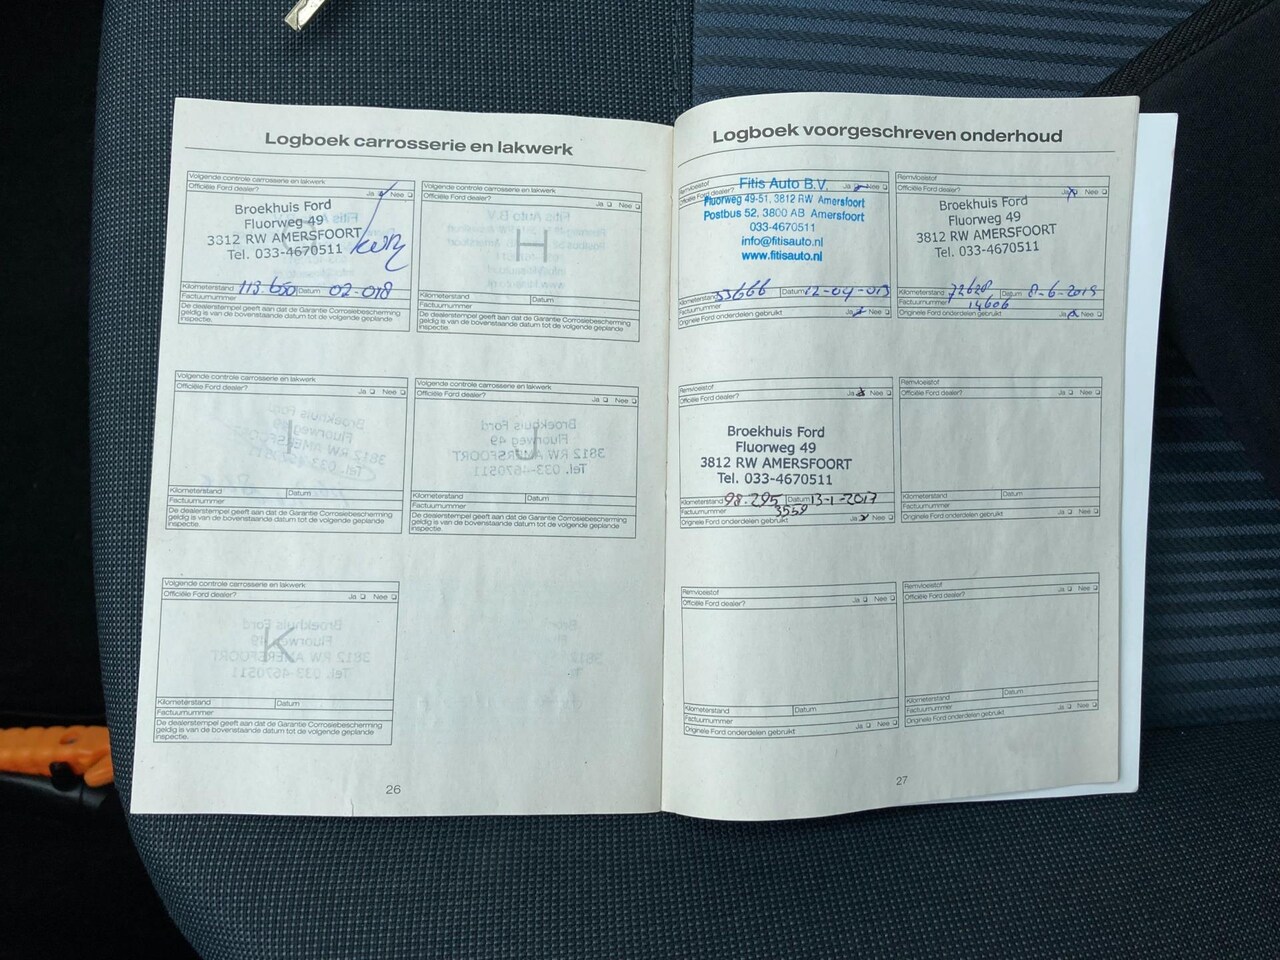 Logboek carrosserie en lakwerk
Volgende controle carrosserie en lakwerk
Officiële Ford dealer? Ja Nee
Broekhuis Ford
Fluorweg 49
3312 RW AMERSFOORT
Tel. 033-4670511
Kilometerstand 113.650 Datum 02-018
Factuurnummer
De dealerstempel geeft aan dat de Garantie Corrosiebescherming
geldig is van de bovenstaande datum tot de volgende geplande
inspectie.
Volgende controle carrosserie en lakwerk
Officiële Ford dealer? Ja Nee
H
Kilometerstand Datum
Factuurnummer
De dealerstempel geeft aan dat de Garantie Corrosiebescherming
geldig is van de bovenstaande datum tot de volgende geplande
inspectie.
Volgende controle carrosserie en lakwerk
Officiële Ford dealer? Ja Nee
I
Kilometerstand Datum
Factuurnummer
De dealerstempel geeft aan dat de Garantie Corrosiebescherming
geldig is van de bovenstaande datum tot de volgende geplande
inspectie.
Volgende controle carrosserie en lakwerk
Officiële Ford dealer? Ja Nee
J
Kilometerstand Datum
Factuurnummer
De dealerstempel geeft aan dat de Garantie Corrosiebescherming
geldig is van de bovenstaande datum tot de volgende geplande
inspectie.
Volgende controle carrosserie en lakwerk
Officiële Ford dealer? Ja Nee
K
Kilometerstand Datum
Factuurnummer
De dealerstempel geeft aan dat de Garantie Corrosiebescherming
geldig is van de bovenstaande datum tot de volgende geplande
inspectie.
26
Logboek voorgeschreven onderhoud
Remvloeistof
Officiële Ford dealer? Ja Nee
Fitis Auto B.V.
Fluorweg 49-51, 3812 RW Amersfoort
Postbus 52, 3800 AB Amersfoort
033-4670511
info@fitisauto.nl
www.fitisauto.nl
Kilometerstand 53666 Datum 12-04-013
Factuurnummer
Originele Ford onderdelen gebruikt Ja Nee
Remvloeistof
Officiële Ford dealer? Ja Nee
Broekhuis Ford
Fluorweg 49
3812 RW AMERSFOORT
Tel. 033-4670511
Kilometerstand 72628 Datum 8-6-2015
Factuurnummer 14606
Originele Ford onderdelen gebruikt Ja Nee
Remvloeistof
Officiële Ford dealer? Ja Nee
Broekhuis Ford
Fluorweg 49
3812 RW AMERSFOORT
Tel. 033-4670511
Kilometerstand 98.295 Datum 13-1-2017
Factuurnummer 3559
Originele Ford onderdelen gebruikt Ja Nee
Remvloeistof
Officiële Ford dealer? Ja Nee
Kilometerstand Datum
Factuurnummer
Originele Ford onderdelen gebruikt Ja Nee
Remvloeistof
Officiële Ford dealer? Ja Nee
Kilometerstand Datum
Factuurnummer
Originele Ford onderdelen gebruikt Ja Nee
Remvloeistof
Officiële Ford dealer? Ja Nee
Kilometerstand Datum
Factuurnummer
Originele Ford onderdelen gebruikt Ja Nee
27